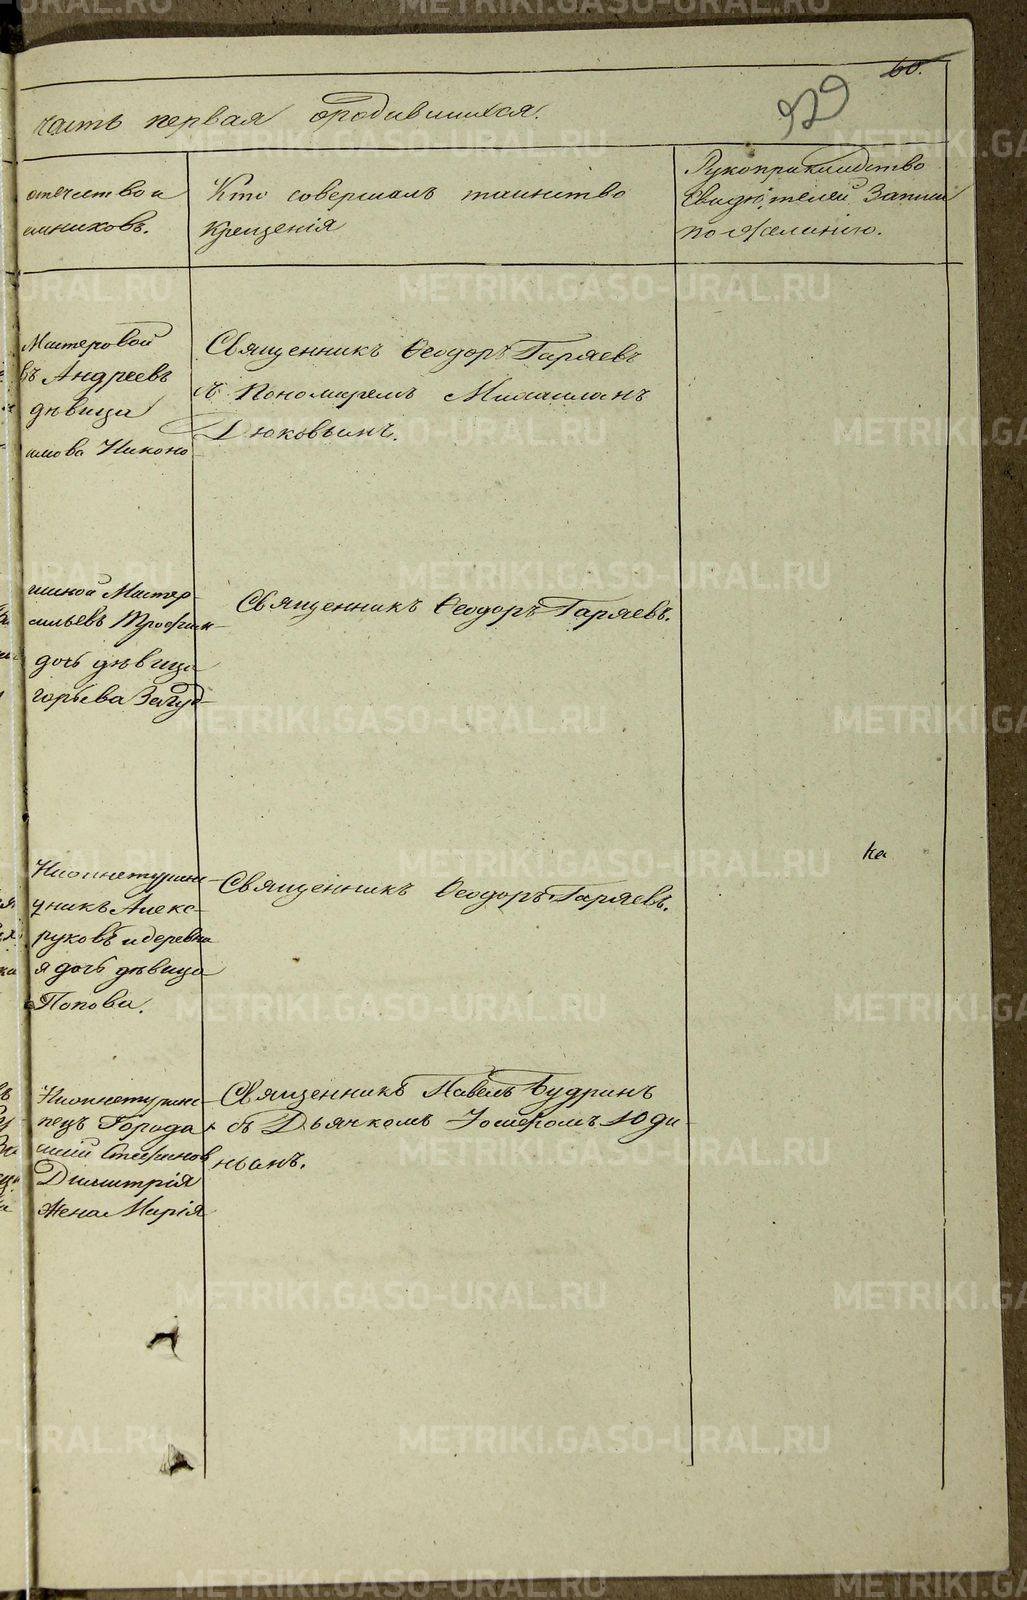 60.
929
часть первая ородившихся.
отчество и
емниковъ.
Кто совершалъ таинство
крещенія
Рукоприкладство
свидѣтелей Записи
по желанію.
Мастеровой
въ Андреевъ
дѣвица
Никоно
Священникъ Ѳеодоръ Гаряевъ
съ Пономаремъ Михаиломъ
Дюковымъ.
Мастер-
сильевъ Трофим-
дочь дѣвица
горьева
Священникъ Ѳеодоръ Гаряевъ.
Нижнетурин-
Алекс-
руковъ и деревни
я дочь дѣвица
Попова.
Священникъ Ѳеодоръ Гаряевъ.
ка
Нижнетурин-
пецъ Города
Стефанов
Димитрія
жена Марія
Священникъ Павелъ Будринъ
съ Дьячкомъ Іосифомъ Юди-
нымъ.
METRIKI.GASO-URAL.RU